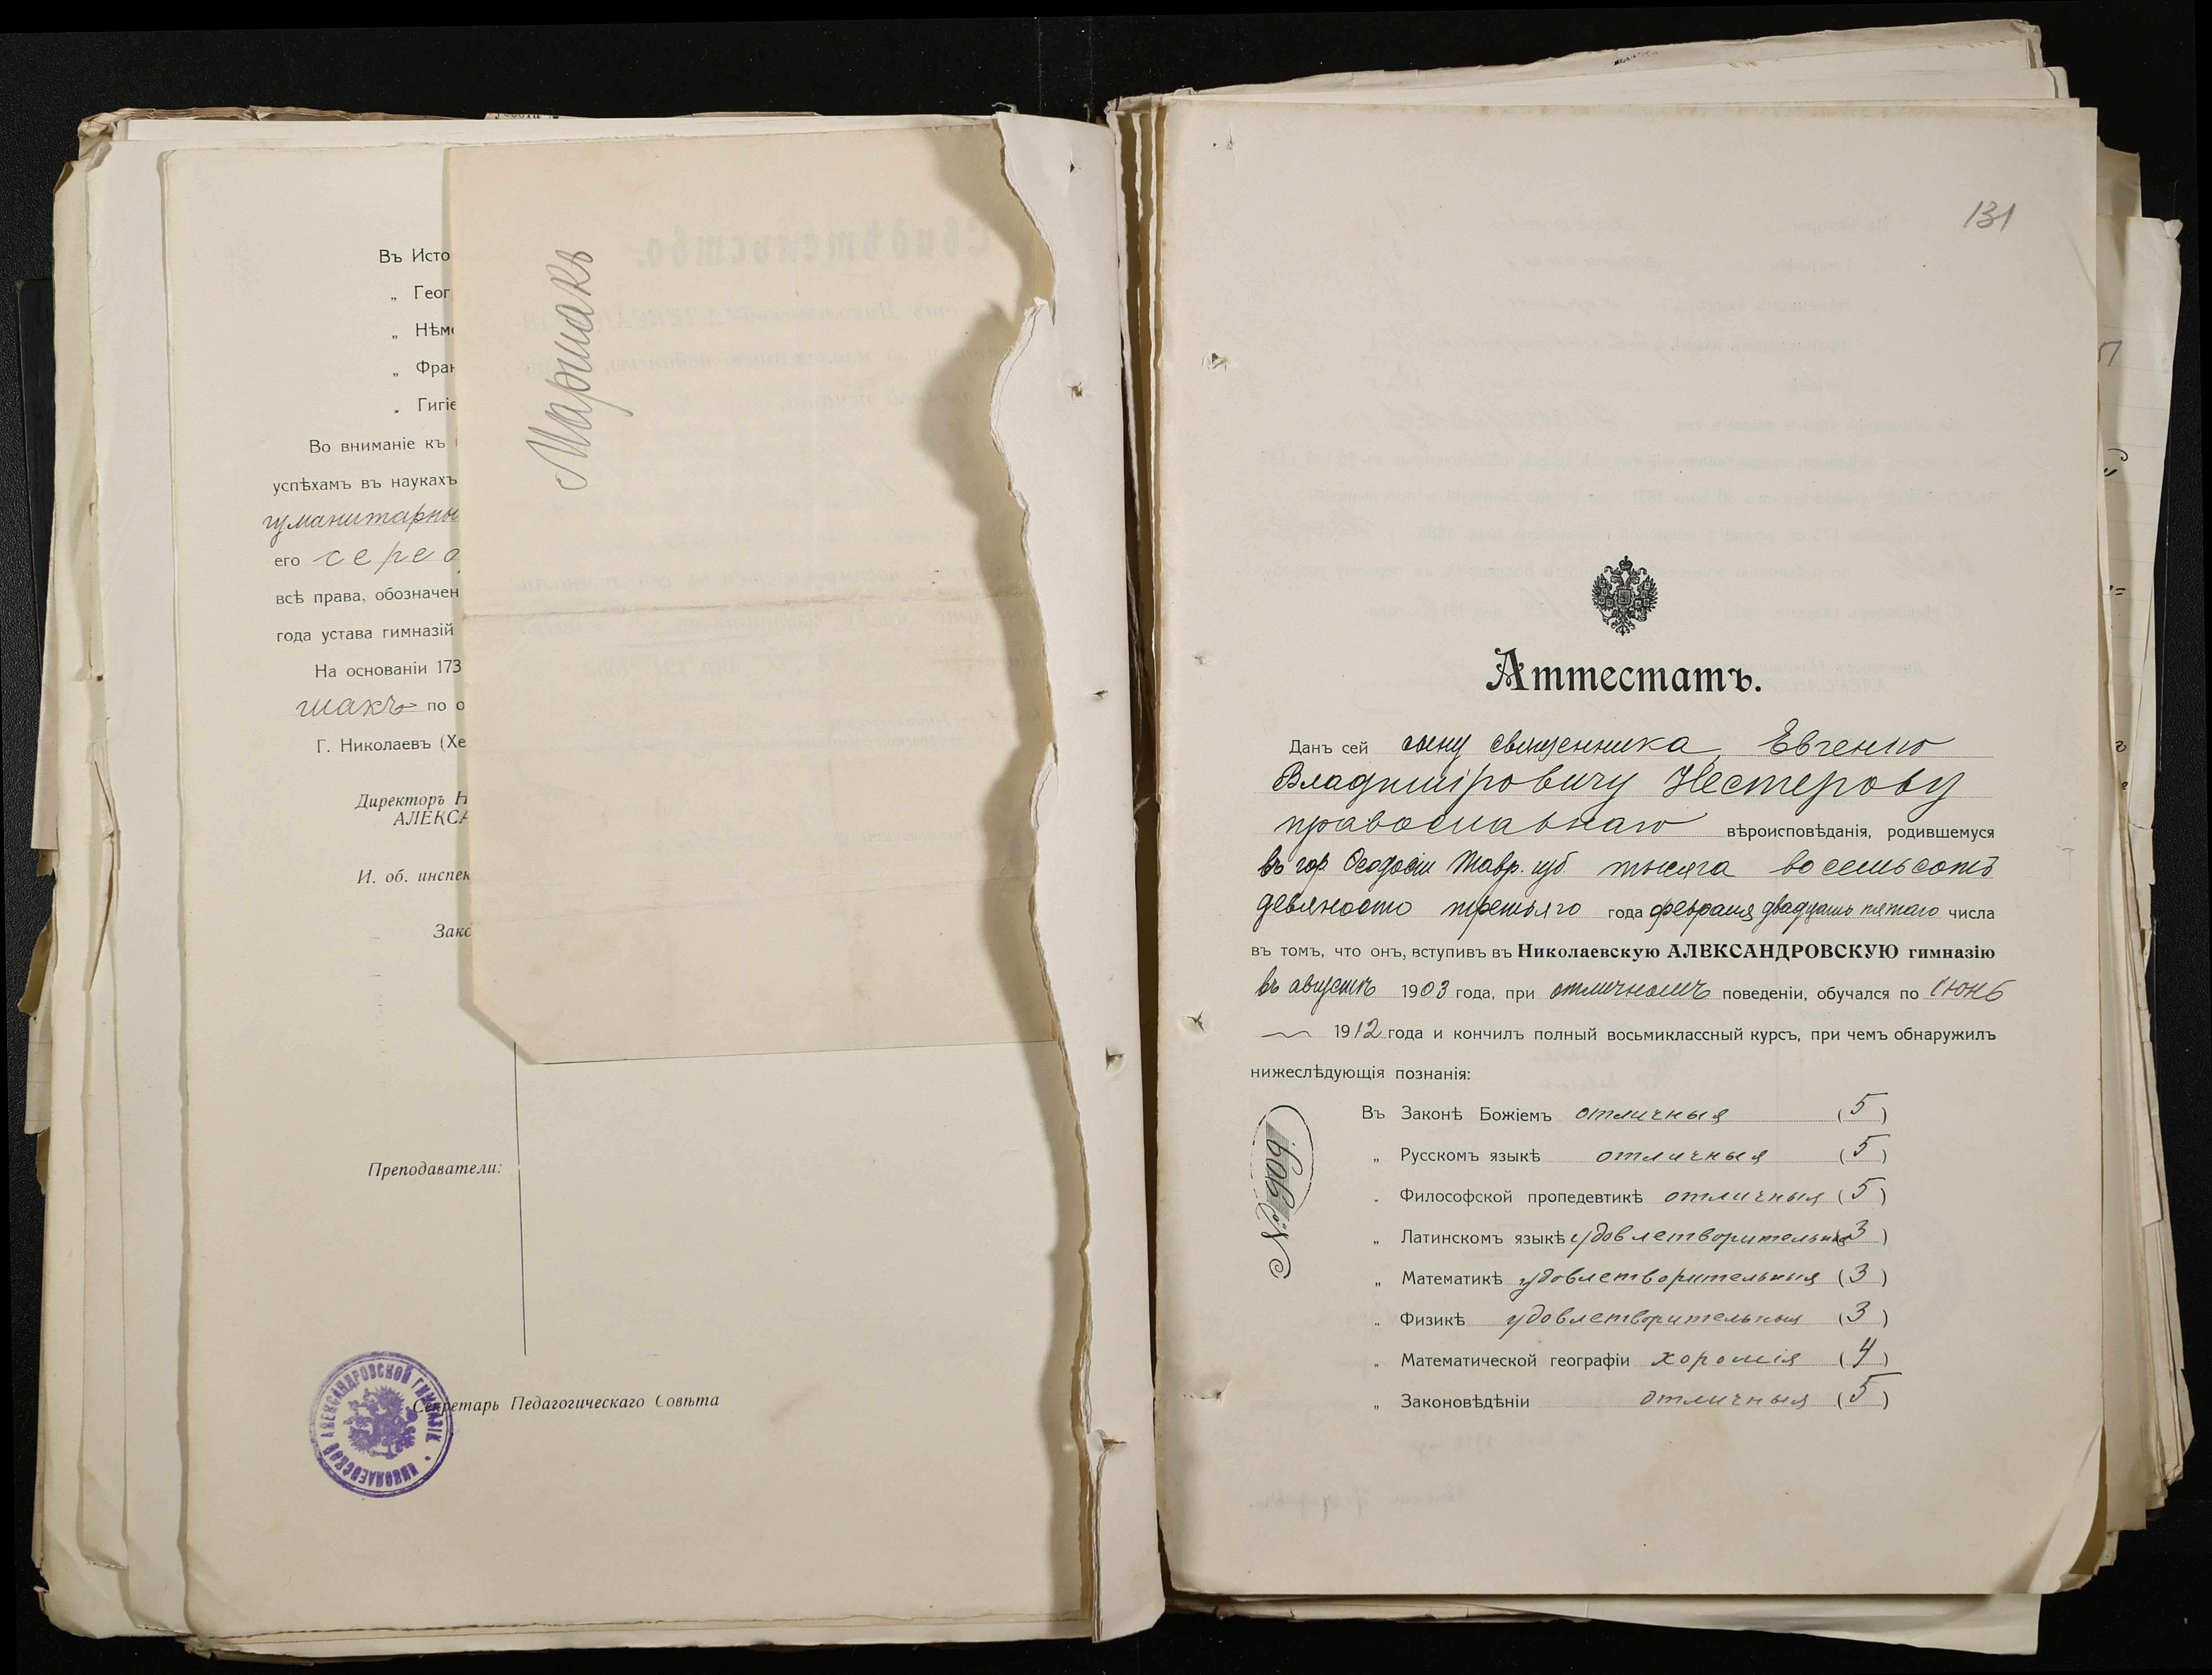 Въ Исто
„ Геог
„ Нѣме
„ Фран
„ Гигіе
Во вниманіе къ
успѣхамъ въ наукахъ
гуманитарны
его серед
всѣ права, обозначен
года устава гимназій
На основаніи 173
шакъ по о
Г. Николаевъ (Хе
Директоръ Н
АЛЕКСА
И. об. инспек
Зако
Преподаватели:
Секретарь Педагогическаго Совѣта
НИКОЛАЕВСКОЙ АЛЕКСАНДРОВСКОЙ ГИМНАЗІИ
Маршакъ
131
Аттестатъ.
Данъ сей сыну священника, Евгенію
Владиміровичу Нестерову
православнаго вѣроисповѣданія, родившемуся
въ гор. Ѳеодосіи Тавр. губ. тысяча восемьсотъ
девяносто третьяго года февраля двадцать пятаго числа
въ томъ, что онъ, вступивъ въ Николаевскую АЛЕКСАНДРОВСКУЮ гимназію
въ августѣ 1903 года, при отличномъ поведеніи, обучался по іюнь
1912 года и кончилъ полный восьмиклассный курсъ, при чемъ обнаружилъ
нижеслѣдующія познанія:
Въ Законѣ Божіемъ отличныя (5)
„ Русскомъ языкѣ отличныя (5)
„ Философской пропедевтикѣ отличныя (5)
„ Латинскомъ языкѣ удовлетворительныя 3)
„ Математикѣ удовлетворительныя (3)
„ Физикѣ удовлетворительныя (3)
„ Математической географіи хорошія (4)
„ Законовѣдѣніи отличныя (5)
№ 909.